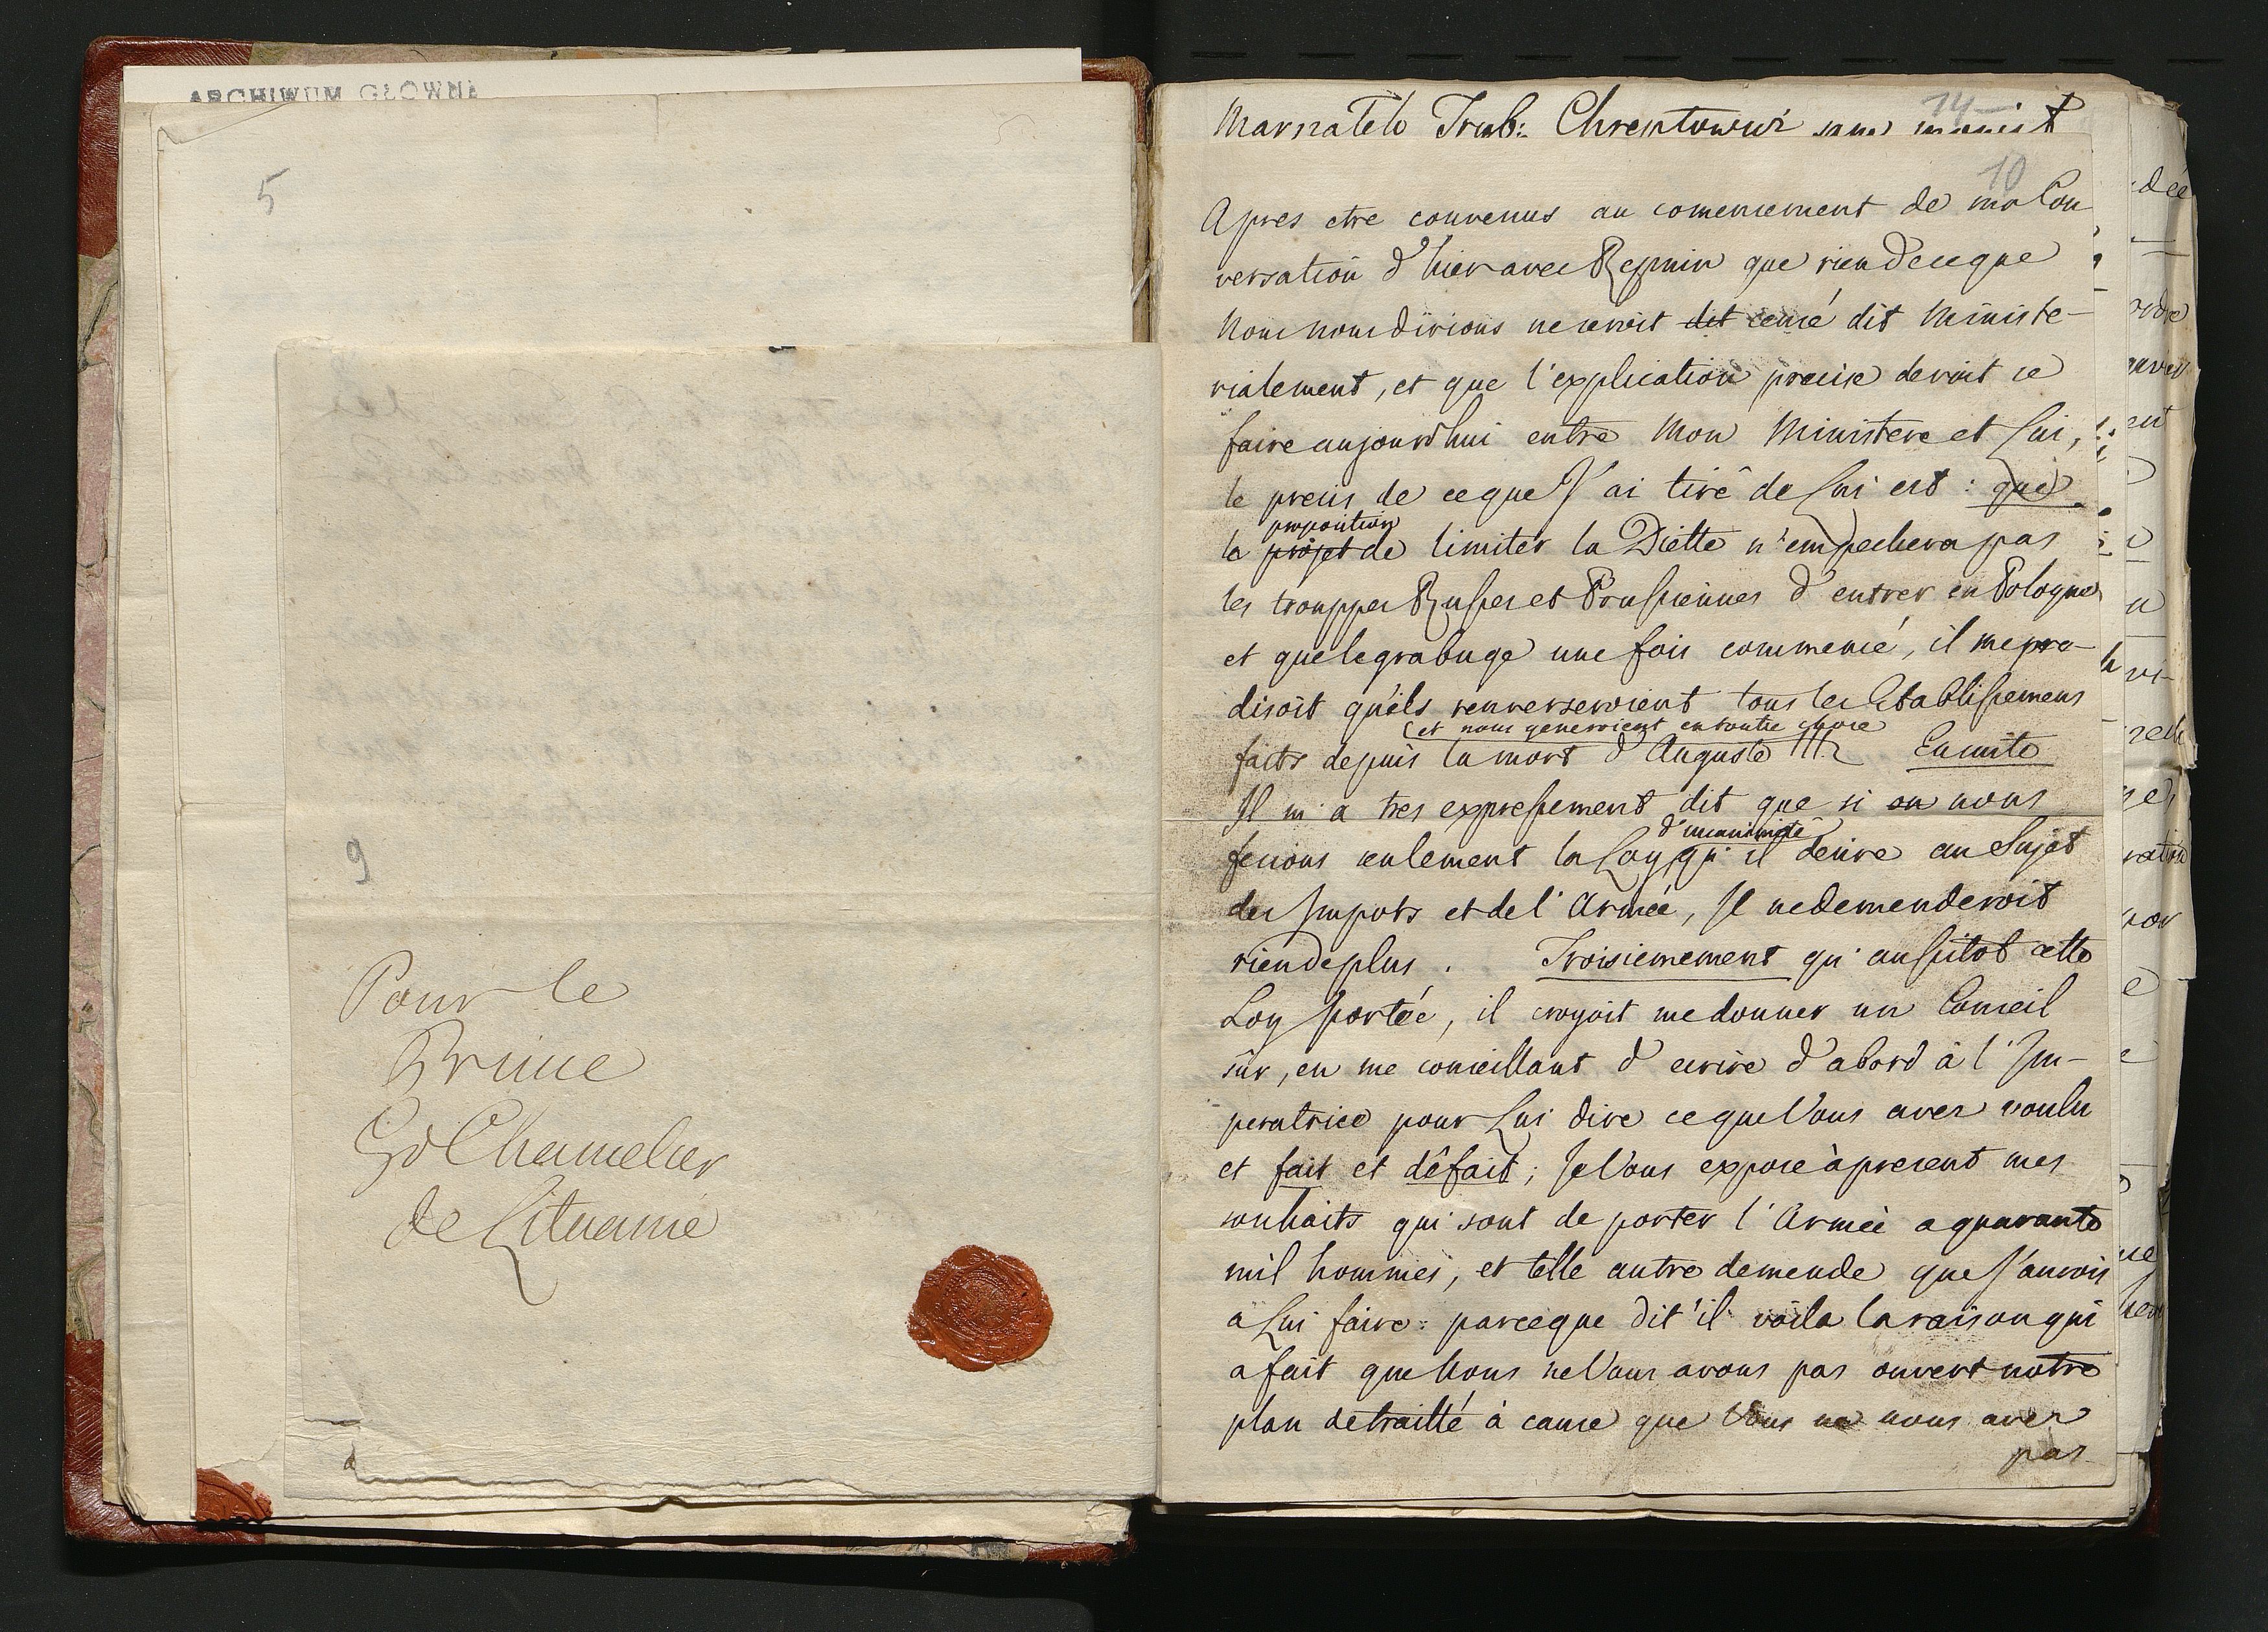 ARCHIWUM GŁOWN
5
9
Pour le
Prince
Gd Chancelier
de Lituanie
14
Marszałek Trub: Chreptowicz sam
10
Apres etre convenus au comencement de ma Con
versation d'hier avec Repnin que rien de ce que
Nous nous dirions ne seroit dit censé dit Ministe-
rialement, et que l'explication precise devoit se
faire aujourdhui entre Mon Ministere et Lui,
le precis de ce que J'ai tiré de Lui est : que
proposition
la projet de limiter la Diette n'empechera pas
les trouppes Russes et Prussiennes d'entrer en Pologne
et que le grabuge une fois commencé, il me pre-
disoit qu'ils renverseroient tous les Etablissemens
(et nous generoient en toute chose
faits depuis la mort d'Auguste III. Ensuite
Il m'a tres expressement dit que si on nous
d'unanimité
fesions seulement la Loy qu'il desire au Sujet
des Impots et de l'Armée, Il ne demenderoit
rien de plus. Troisiemement qu'aussitot cette
Loy portée, il croyoit me donner un Conseil
sûr, en me conseillant d'ecrire d'abord à l'Im-
peratrice pour Lui dire ce que Vous avez voulu
et fait et défait; Je Vous expose à present mes
souhaits qui sont de porter l'Armée a quarante
mil hommes, et telle autre demende que J'aurois
a Lui faire: parceque dit'il voila la raison qui
a fait que Nous ne Vous avons pas ouvert notre
plan detraillé à cause que Vous ne nous avez
pas